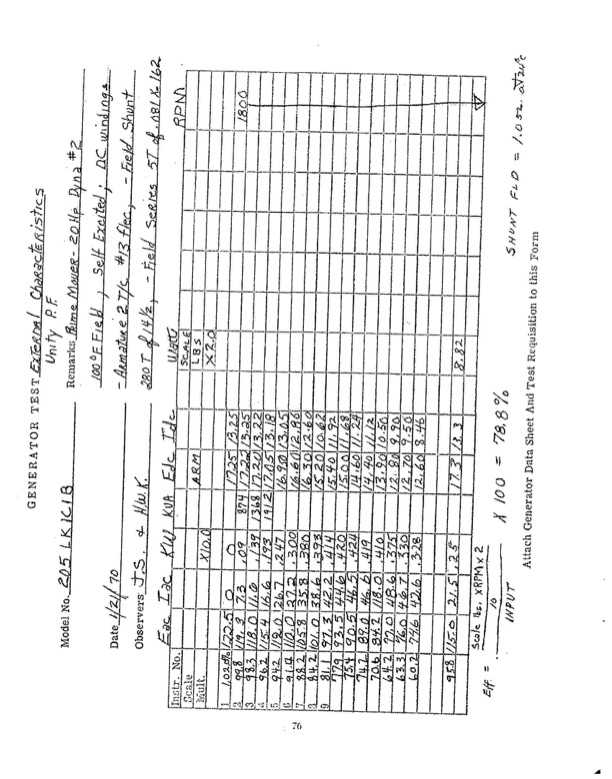 GENERATOR TEST External Characteristics
Unity P.F.
Model No. 205 LK1C1B
Remarks Prime Mover - 20 HP Dyna #2
100°F Field, Self Excited; DC windings
Date 1/21/70
- Armature 2 T/C #13 flec, - Field Shunt
Observers J.S. & H.W.K.
280 T of 14½, - Field Series 5T of .081 X .162
Instr. No. Eac Iac KW KVA Edc Idc Watt RPM
Scale ARM SCALE LBS
Mult. X10.0 X2.0
1 102.0% 122.5 0 0 17.25 13.25
2 99.8 119.8 7.3 .09 874 17.22 13.25 1800
3 98.3 118.0 11.6 .139 1368 17.20 13.22
4 96.2 115.4 16.6 .193 1912 17.05 13.18
5 94.2 113.0 26.7 .247 16.90 13.05
6 91.2 110.0 27.2 .300 16.60 12.86
7 88.2 105.8 35.8 .380 16.30 12.60
8 84.2 101.0 38.6 .393 15.20 10.62
9 81.1 97.3 42.2 .414 15.40 11.92
77.9 93.5 44.6 .420 15.00 11.68
75.4 90.5 46.5 .424 14.60 11.24
74.2 89.0 46.6 .419 14.40 11.12
70.6 84.2 48.0 .410 13.90 10.50
64.2 77.0 48.6 .375 12.80 9.90
63.3 76.0 46.7 .330 12.70 9.50
60.2 74.6 42.6 .328 12.60 8.46
95.8 115.0 21.5 .25 17.3 13.3 8.82
Eff. = Scale lbs. X RPM X 2
10
INPUT
X 100 = 78.8%
SHUNT FLD = 1.05
Attach Generator Data Sheet And Test Requisition to this Form
76